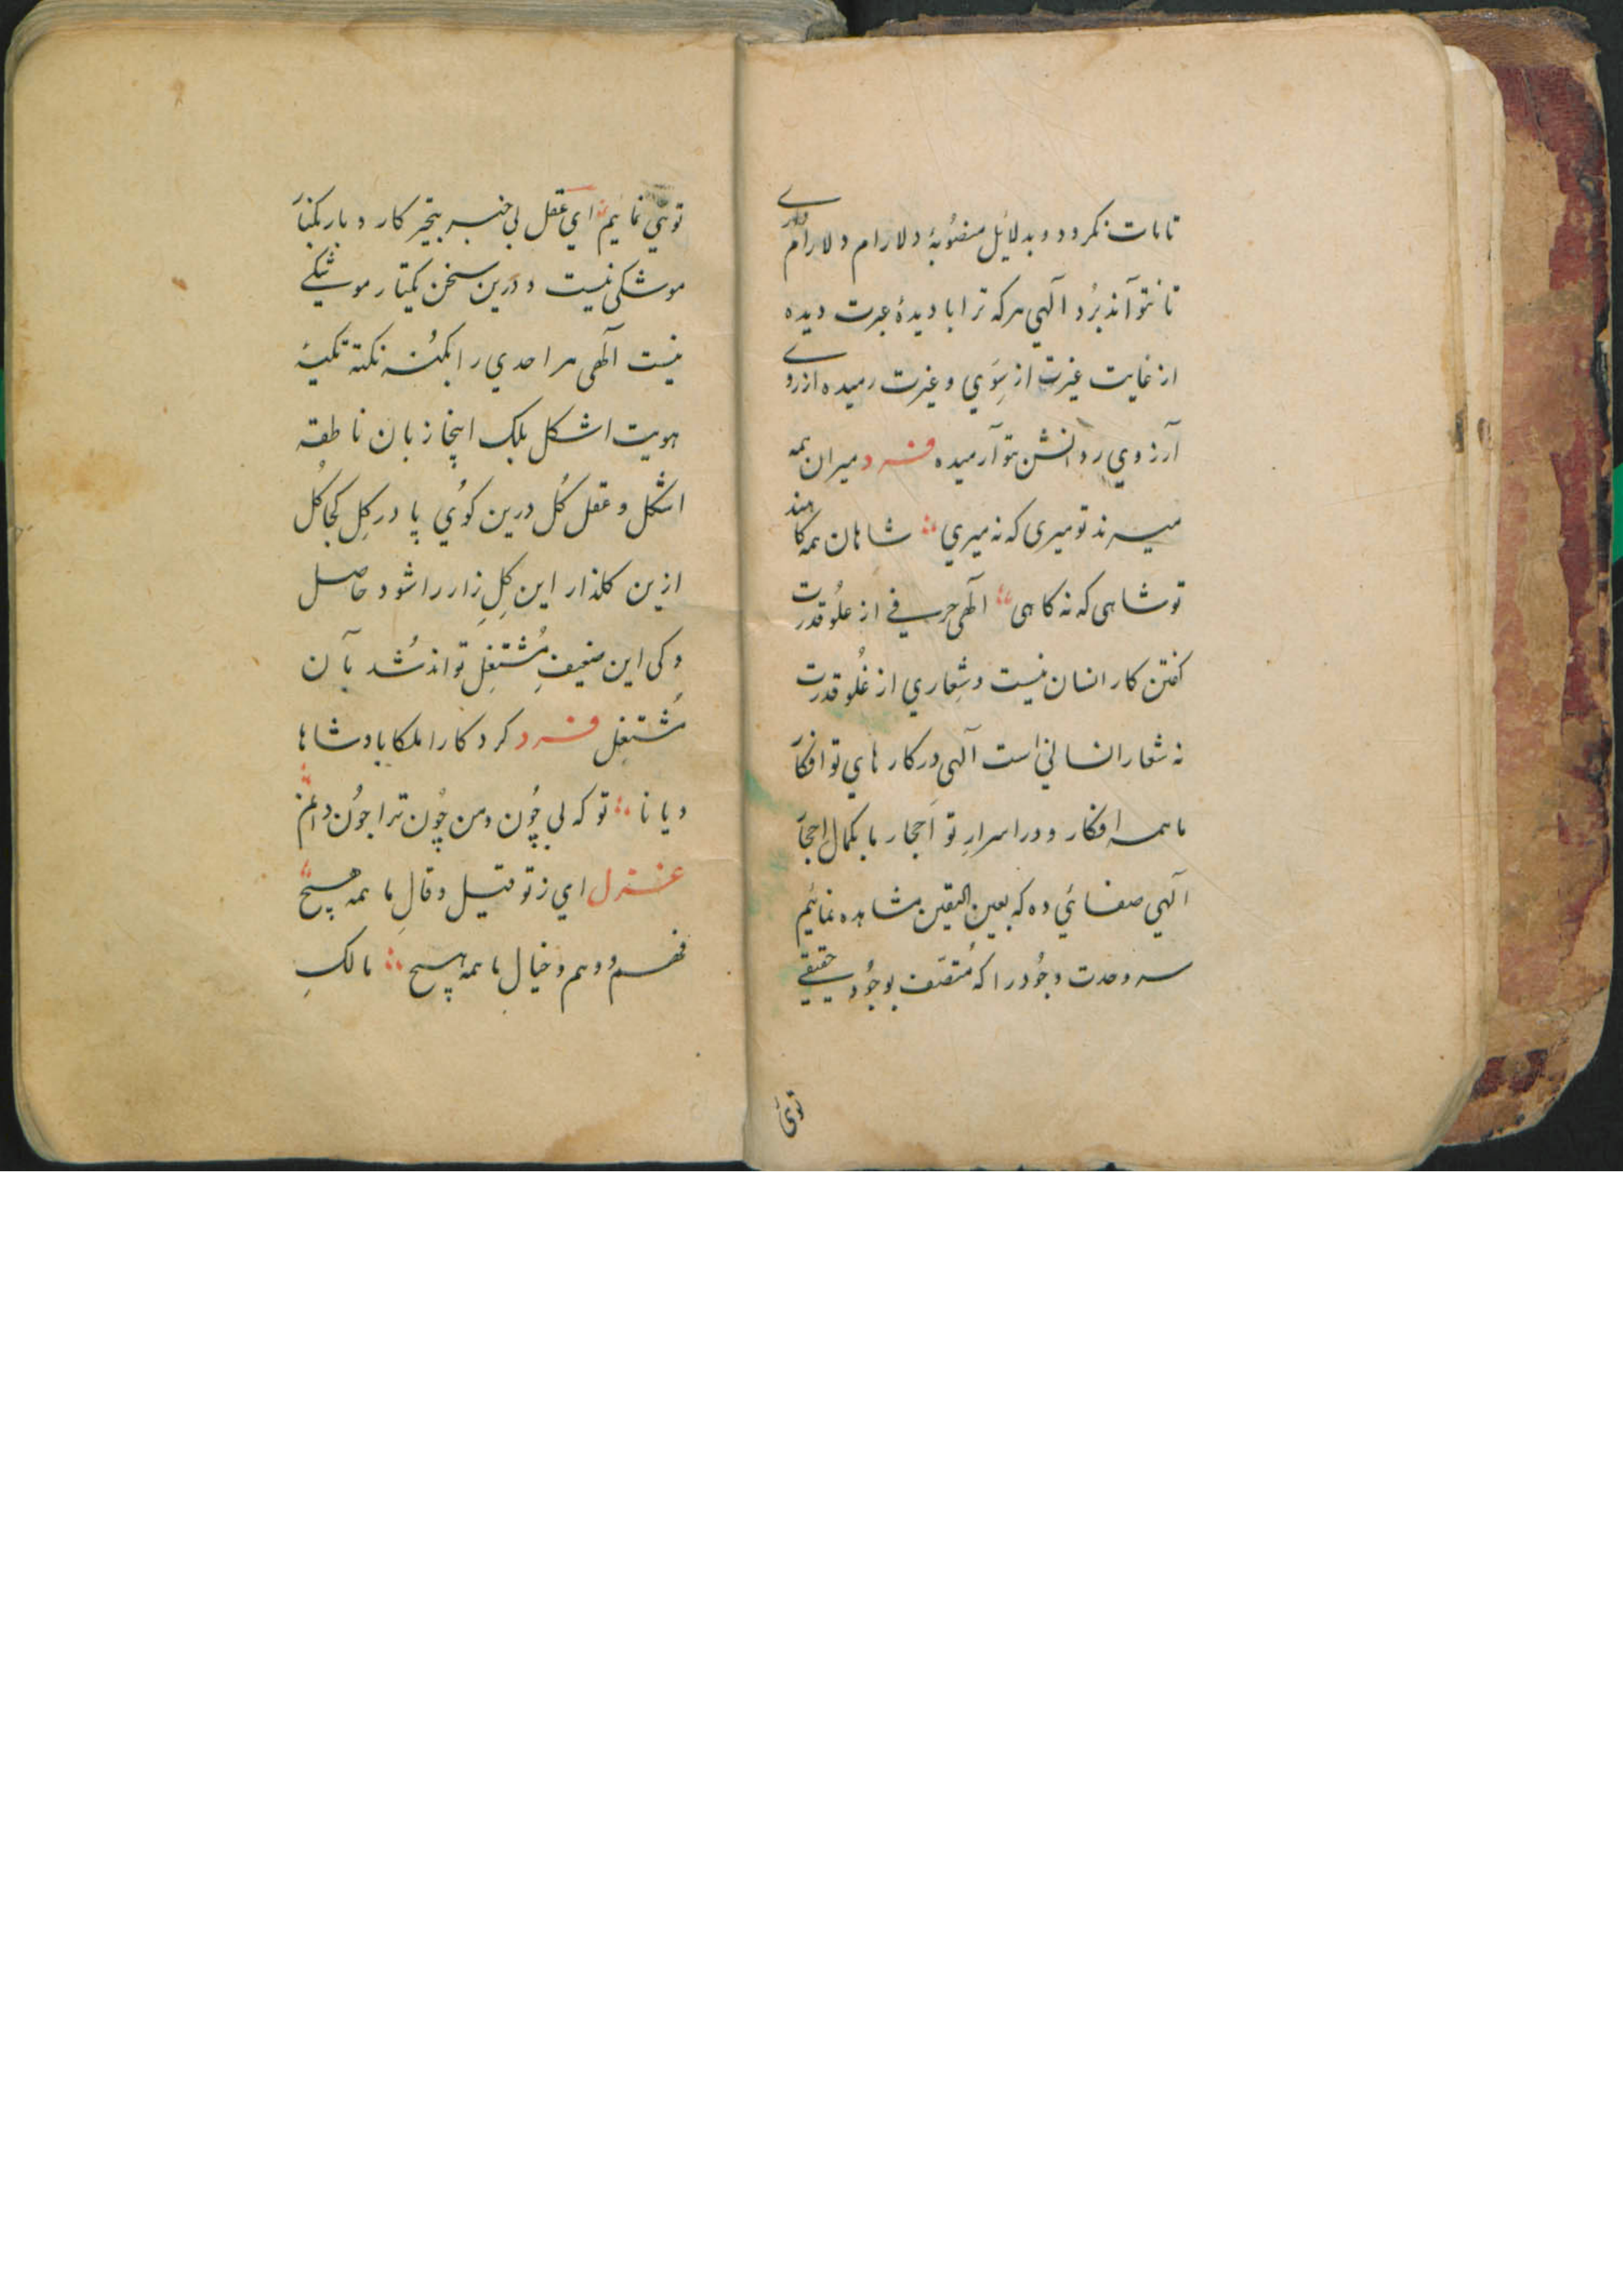 تا مات نگردد و بدلائل منصوبهٔ دلارام دلارام را وے
تا نتواند برد آلهي هر که ترا با دیدهٔ عبرت دیده
از غایت غیرت از سِوَي و غیرت رمیده از روے
آرزوي روانش بتو آرمیده فرد میران همه
میرند تو میری که نه میري ؞ شاهان همه کاهند
تو شاهی که نه کاهی ؞ آلهی حرفے از علُو قدرت
گفتن کار انسان نیست و شِعاري از غُلُو قدرت
نه شعار انسانی است آلهي در کارهاي تو افکار
ما همه افکار و در اسرارِ تو اَحجار ما بکمال احجار
آلهي صفائي ده که بعین الیقین مشاهده نمائیم
سه وحدت وجُود را که مُتصَف بوجُود حقیقے
توئی
توئي نمائیم ؞ اي عقل بی خبر بتحیر کار و بار یکتا
موشکی نیست و درین سخن یکتا ر موشکے
نیست آلهی هر احدي را بکُنه نکته نکتهٔ
هویت اشکل بلک اینجا زبان ناطقه
اشکل و عقل کُل درین کوُي پا در گِل کجا گُل
ازین گلذار این گِلِ زار را شود حاصل
و کی این ضعیفِ مُشتغِل تواند شُد بآن
مُشتغِل فرد کردکارا ملکا پادشاها
دیانا ؞ تو که بی چُون و من چُون ترا چون دانم ؞
غزل اي ز تو قیل و قالِ ما همه هیچ ؞
فهم و وهم و خیال ما همه هیچ ؞ مالکِ